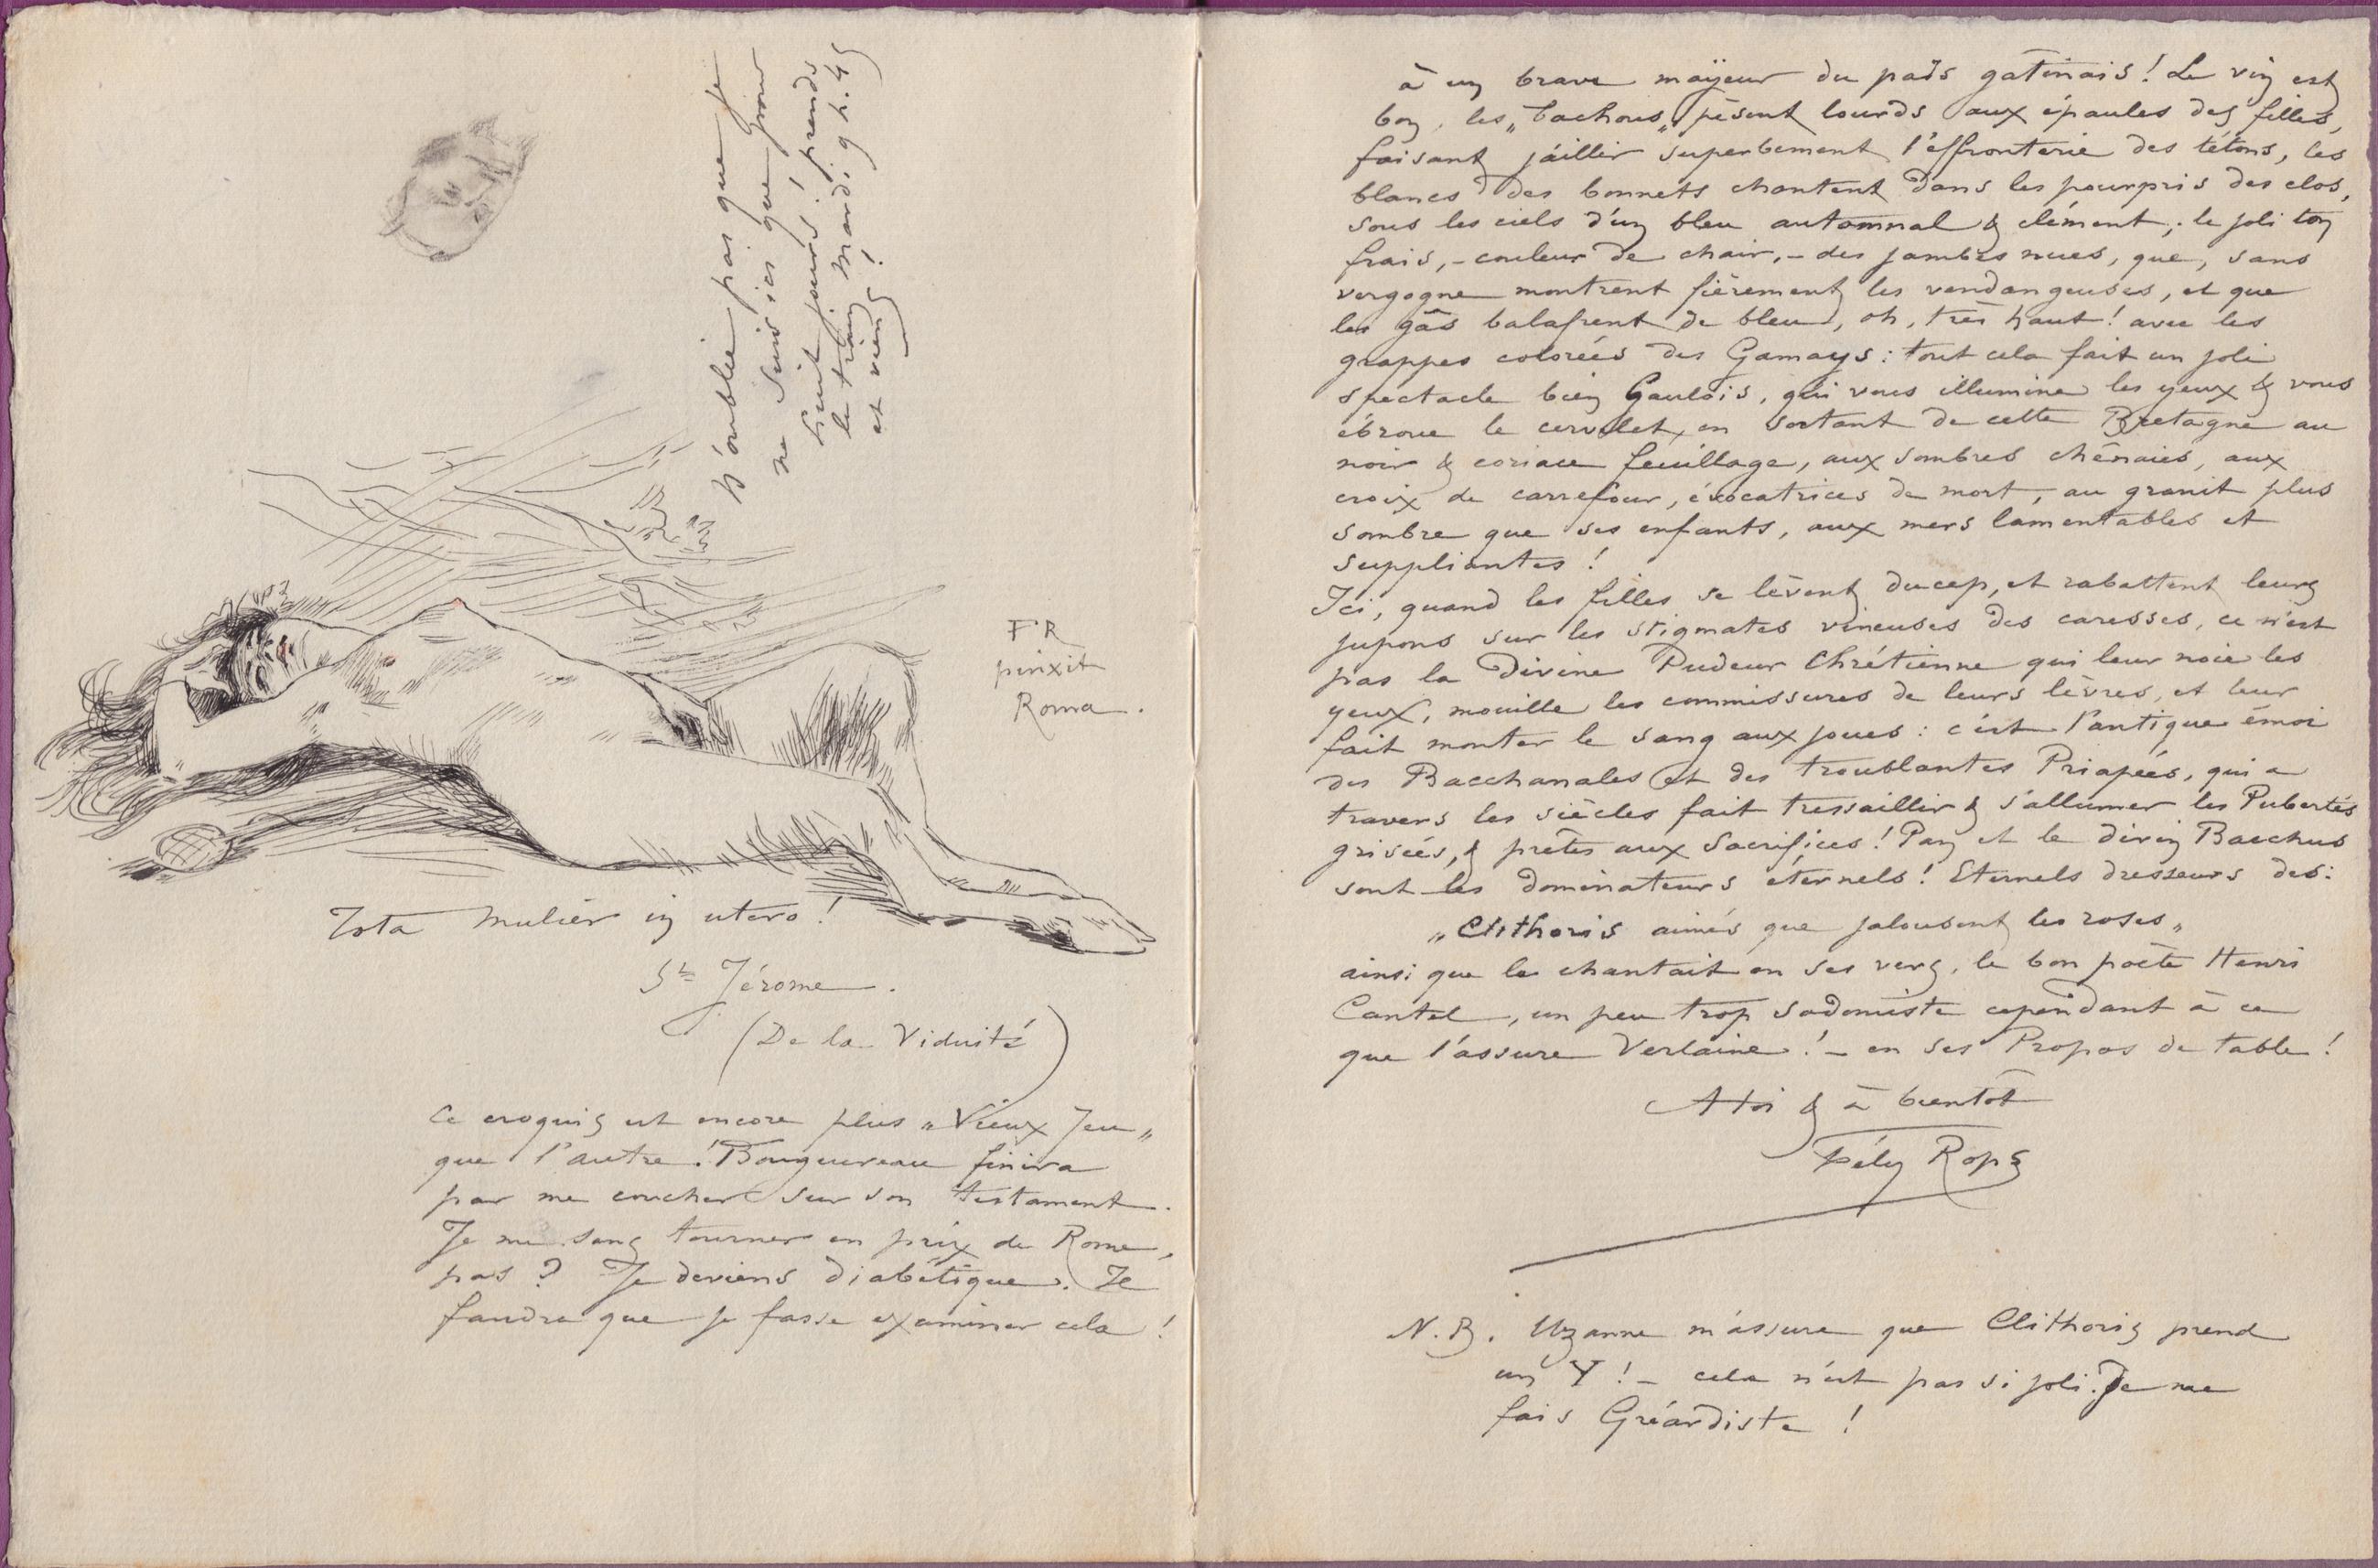 N'oublie pas que je
ne suis ici que pour
huit jours! prends
le train Mardi 9 h. 45
et viens!
FR
pinxit
Roma.
Tota Mulier in utero!
St Jérome.
(De la Viduité)
Ce croquis est encore plus „Vieux Jeu„
que l'autre! Bouguereau finira
par me coucher sur son testament.
Je me sens tourner en prix de Rome,
pas? Je deviens diabétique. Il
faudra que je fasse examiner cela!
à un brave mayeur du païs gatinais! Le vin est
bon, les „bachous„ pèsent lourds aux épaules des filles,
faisant jaillir superbement l'effronterie des tétons, les
blancs des bonnets chantent dans les pourpris des clos,
sous les ciels d'un bleu automnal & clément; le joli ton
frais, – couleur de chair, – des jambes nues, que, sans
vergogne montrent fièrement les vendangeuses, et que
les gâs balafrent de bleu, oh, très haut! avec les
grappes colorées des Gamays: tout cela fait un joli
spectacle bien Gaulois, qui vous illumine les yeux & vous
ébroue le cervelet, en sortant de cette Bretagne au
noir & coriace feuillage, aux sombres chênaies, aux
croix de carrefour, évocatrices de mort, au granit plus
sombre que ses enfants, aux mers lamentables et
suppliantes!
Ici, quand les filles se lèvent du cep, et rabattent leurs
jupons sur les stigmates vineuses des caresses, ce n'est
pas la Divine Pudeur Chrétienne qui leur noie les
yeux, mouille les commissures de leurs lèvres, et leur
fait monter le sang aux joues: c'est l'antique émoi
des Bacchanales et des troublantes Priapées, qui a
travers les siècles fait tressaillir & s'allumer les Pubertés
grisées, & prêtes aux Sacrifices! Pan et le divin Bacchus
sont les dominateurs éternels! Eternels dresseurs des:
„Clithoris aimés que jalousent les roses„
ainsi que le chantait en ses vers, le bon poète Henri
Cantel, un peu trop sodomiste cependant à ce
que l'assure Verlaine! – en ses Propos de table!
A toi & à bientôt
Fély Rops
N.B. Uzanne m'assure que Clithoris prend
un Y! – cela n'est pas si joli. Je me
fais Gréardiste!